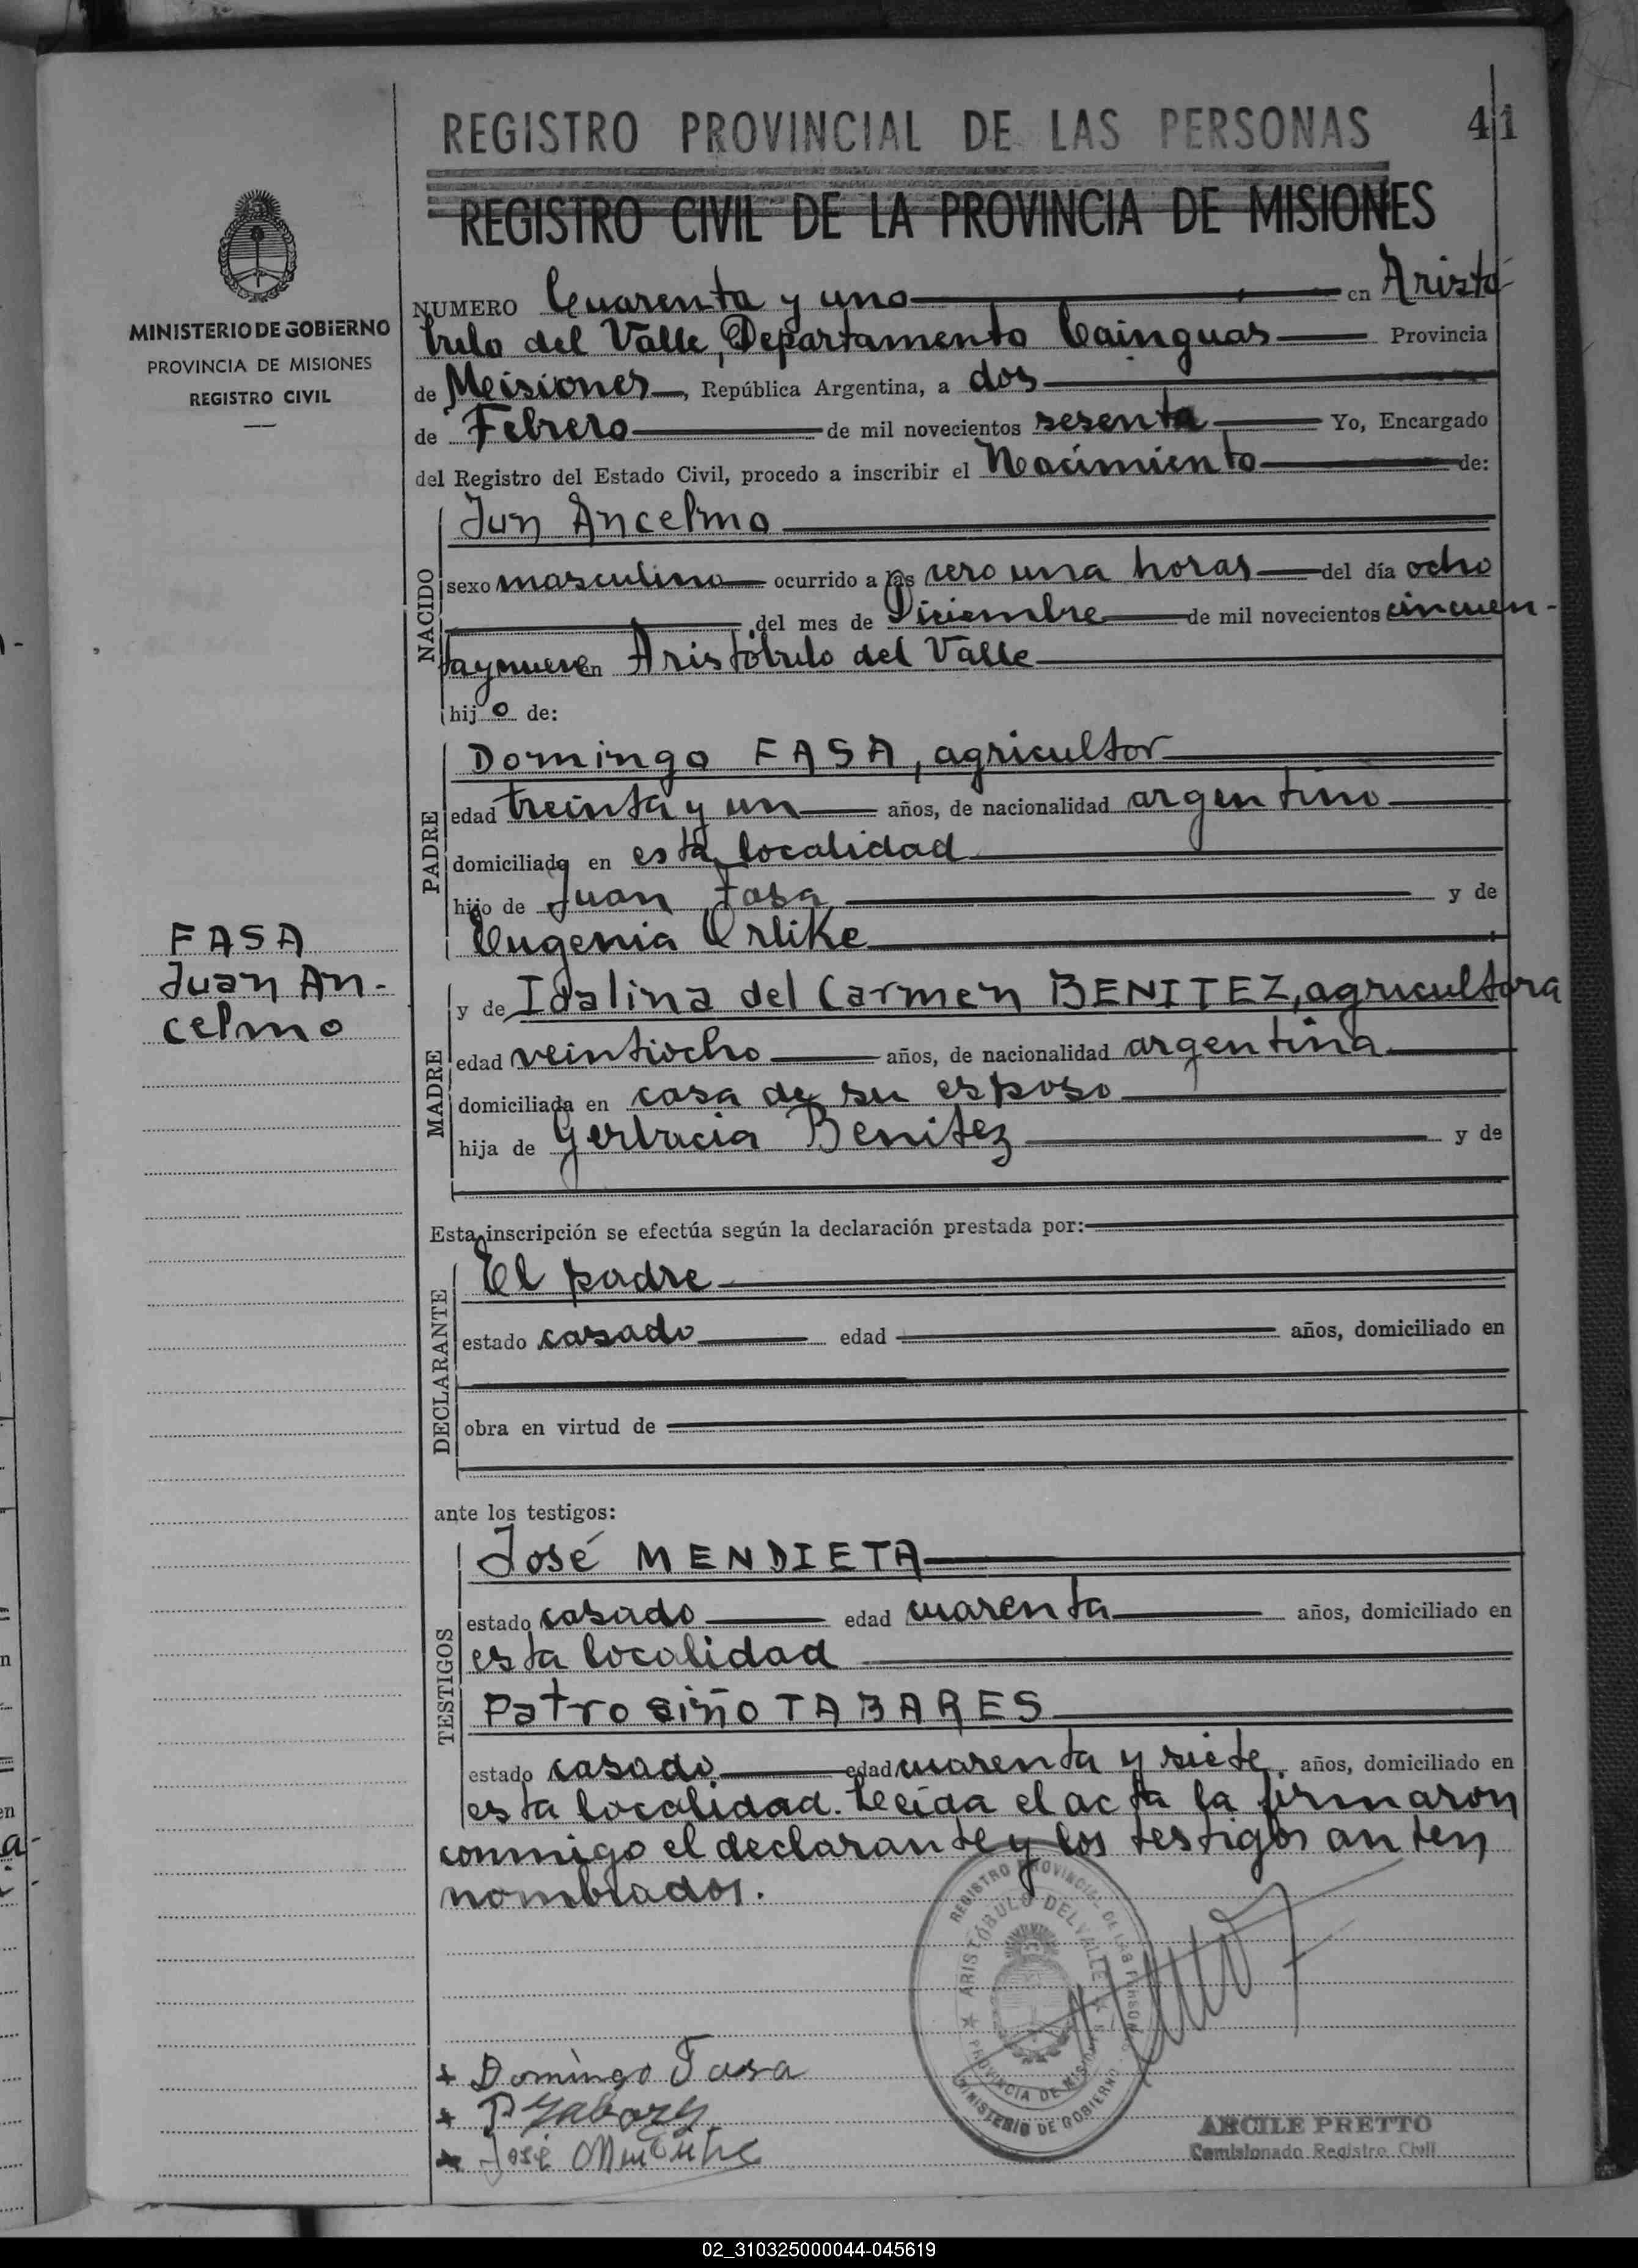 REGISTRO PROVINCIAL DE LAS PERSONAS 41
REGISTRO CIVIL DE LA PROVINCIA DE MISIONES
MINISTERIO DE GOBIERNO
PROVINCIA DE MISIONES
REGISTRO CIVIL
NUMERO Cuarenta y uno en Aristó-
bulo del Valle, Departamento Cainguas Provincia
de Misiones, República Argentina, a dos
de Febrero de mil novecientos sesenta Yo, Encargado
del Registro del Estado Civil, procedo a inscribir el Nacimiento de:
NACIDO
Jun Ancelmo
sexo masculino ocurrido a las cero una horas del día ocho
del mes de Diciembre de mil novecientos cincuen-
taynueve en Aristóbulo del Valle
hijo de:
PADRE
Domingo FASA, agricultor
edad treinta y un años, de nacionalidad argentino
domiciliado en esta localidad
hijo de Juan Fasa y de
Eugenia Orlike
FASA
Juan An-
celmo
MADRE
y de Idalina del Carmen BENITEZ, agricultora
edad veintiocho años, de nacionalidad argentina
domiciliada en casa de su esposo
hija de Gerbacia Benitez y de
Esta inscripción se efectúa según la declaración prestada por:
DECLARANTE
El padre
estado casado edad años, domiciliado en
obra en virtud de
ante los testigos:
TESTIGOS
José MENDIETA
estado casado edad cuarenta años, domiciliado en
esta localidad
Patrosiño TABARES
estado casado edad cuarenta y siete años, domiciliado en
esta localidad. Leida el acta la firmaron
conmigo el declarante y los testigos anten
nombrados.
REGISTRO PROVINCIAL DE LAS PERSONAS
ARISTÓBULO DEL VALLE
PROVINCIA DE MISIONES
MINISTERIO DE GOBIERNO
Domingo Fasa
José
ARCILE PRETTO
Comisionado Registro Civil
02_310325000044-045619